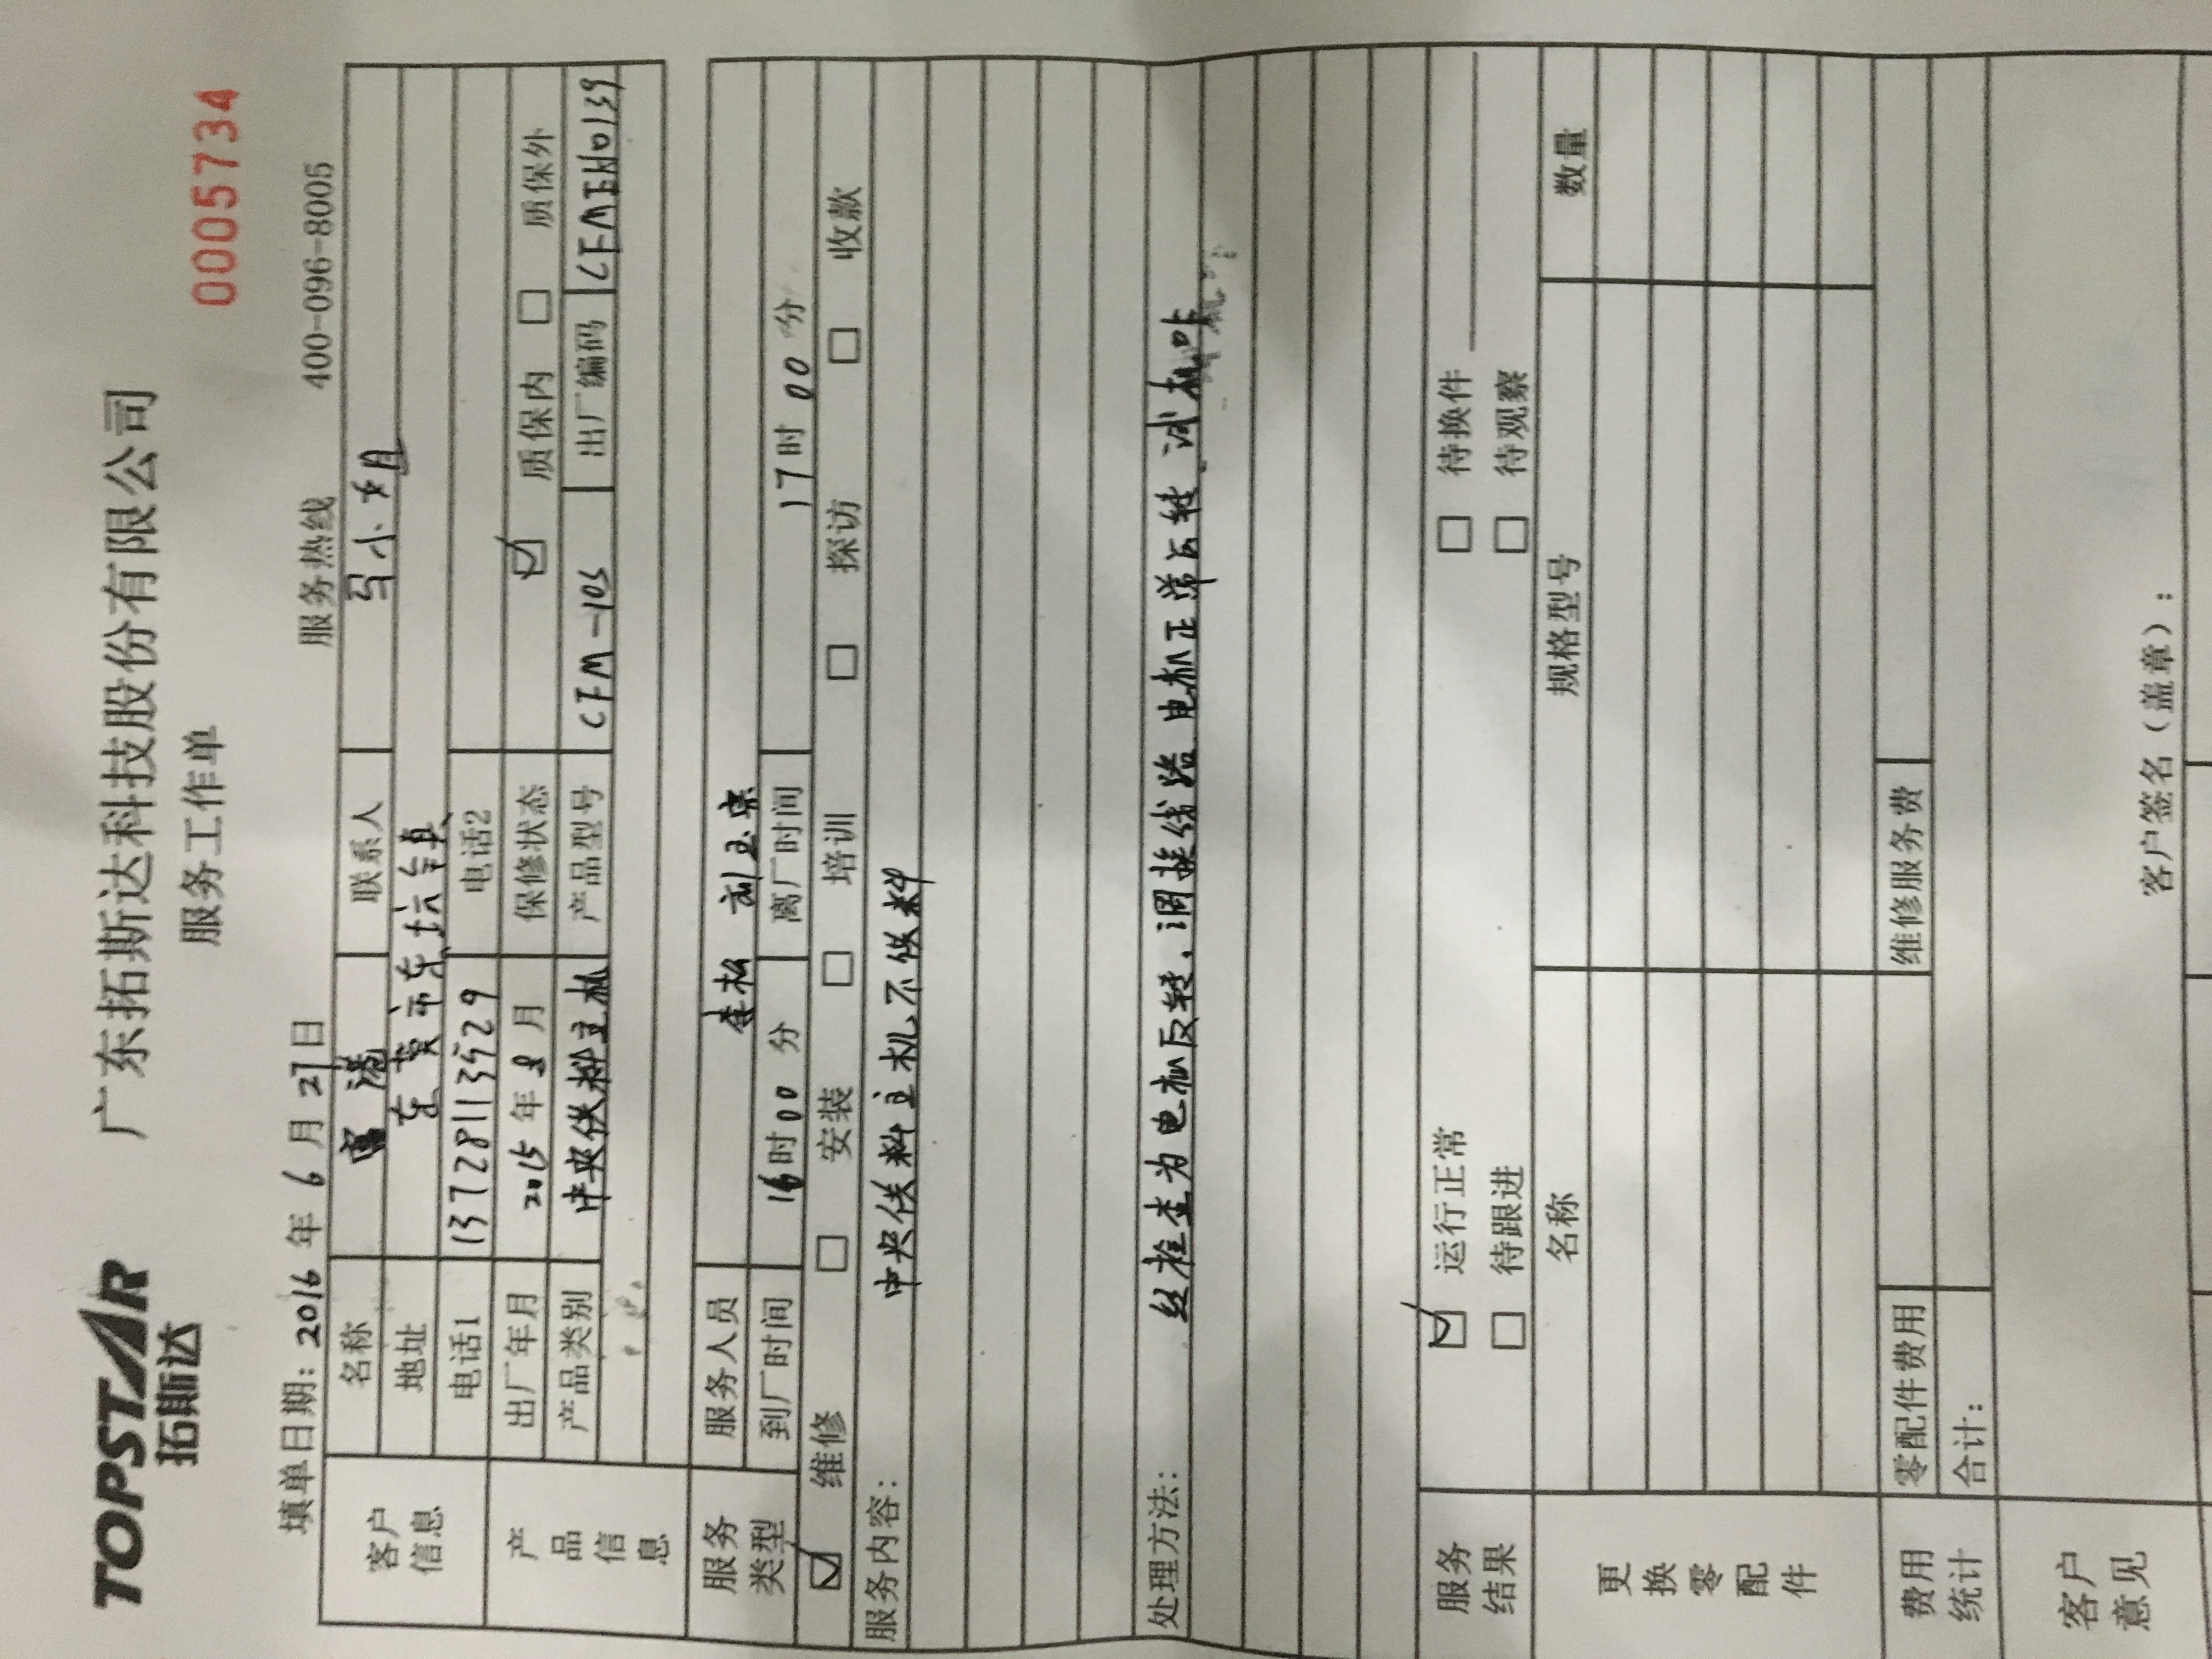 TOPSTAR 拓斯达
广东拓斯达科技股份有限公司
服务工作单
0005734
填单日期: 2016 年 6 月 27 日 服务热线 400-096-8005
客户信息
名称 富港 联系人 马小姐
地址 东莞市东坑镇
电话1 13728113529 电话2
产品信息
出厂年月 2015 年 8 月 保修状态 ☑ 质保内 □ 质保外
产品类别 中央供料主机 产品型号 CFM-10S 出厂编码
服务类型
服务人员 李松
到厂时间 16 时 00 分 离厂时间 17 时 00 分
☑ 维修 □ 安装 □ 培训 □ 探访 □ 收款
服务内容: 中央供料主机不供料
处理方法: 经检查为电机反转,调换线路 电机正常运转 试机
服务结果
☑ 运行正常 □ 待换件
□ 待跟进 □ 待观察
更换零配件
名称 规格型号 数量
费用统计
零配件费用 维修服务费
合计:
客户意见
客户签名(盖章):